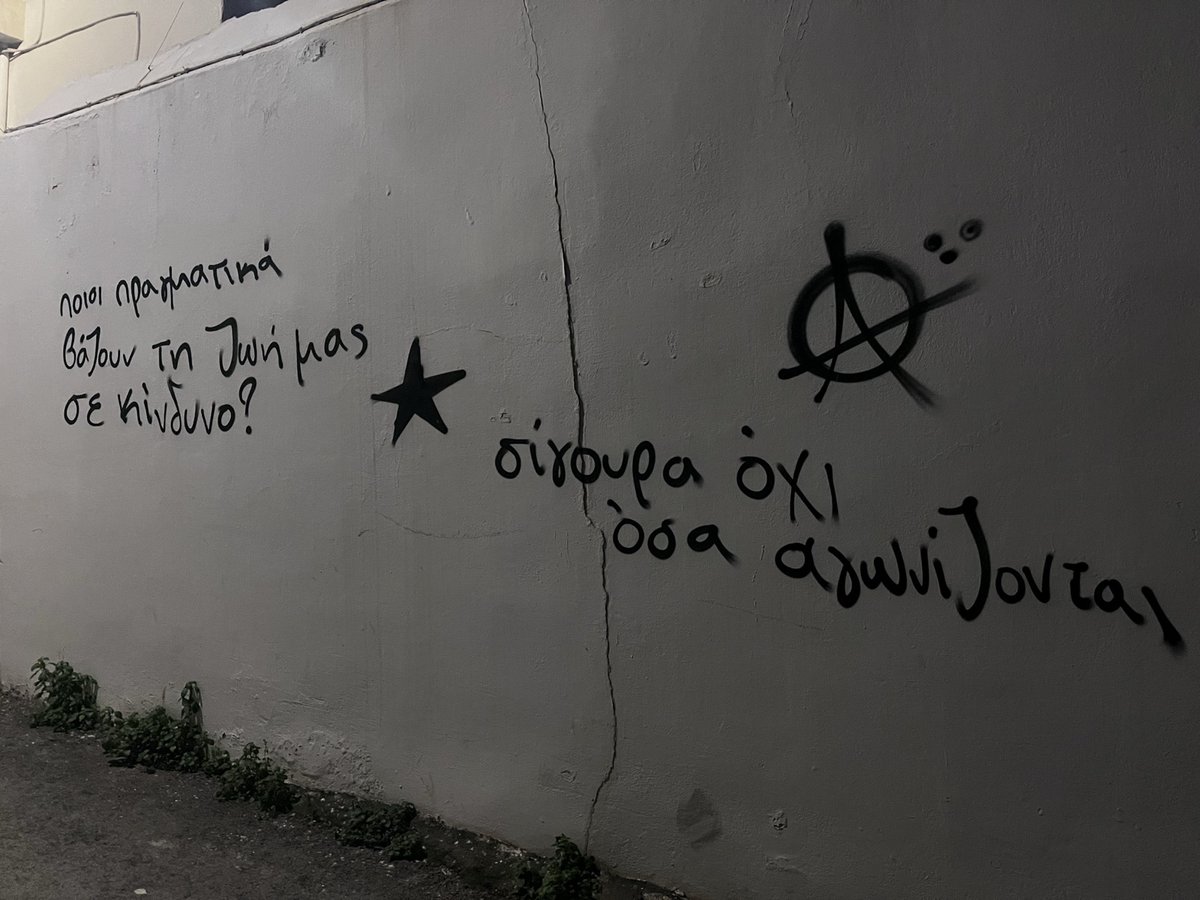 ποιοι πραγματικά
βάζουν τη ζωή μας
σε κίνδυνο?
σίγουρα όχι
όσα αγωνίζονται